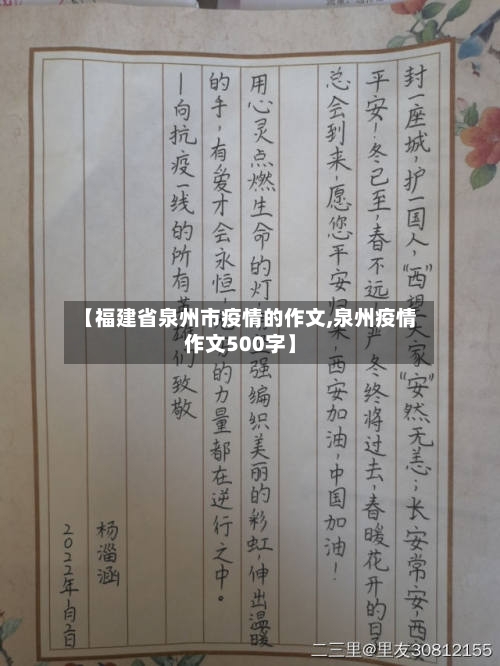 封一座城，护一国人，“西”望大家“安”然无恙；长安常安，西
平安！冬已至，春不远，严冬终将过去，春暖花开的日
总会到来，愿您平安归来，西安加油，中国加油！
用心灵点燃生命的灯，强编织美丽的彩虹，伸出温暖
的手，有爱才会永恒，的力量都在逆行之中。
—向抗疫一线的所有英雄们致敬
杨淄涵
2022年1月2日
【福建省泉州市疫情的作文,泉州疫情
作文500字】
二三里@里友30812155